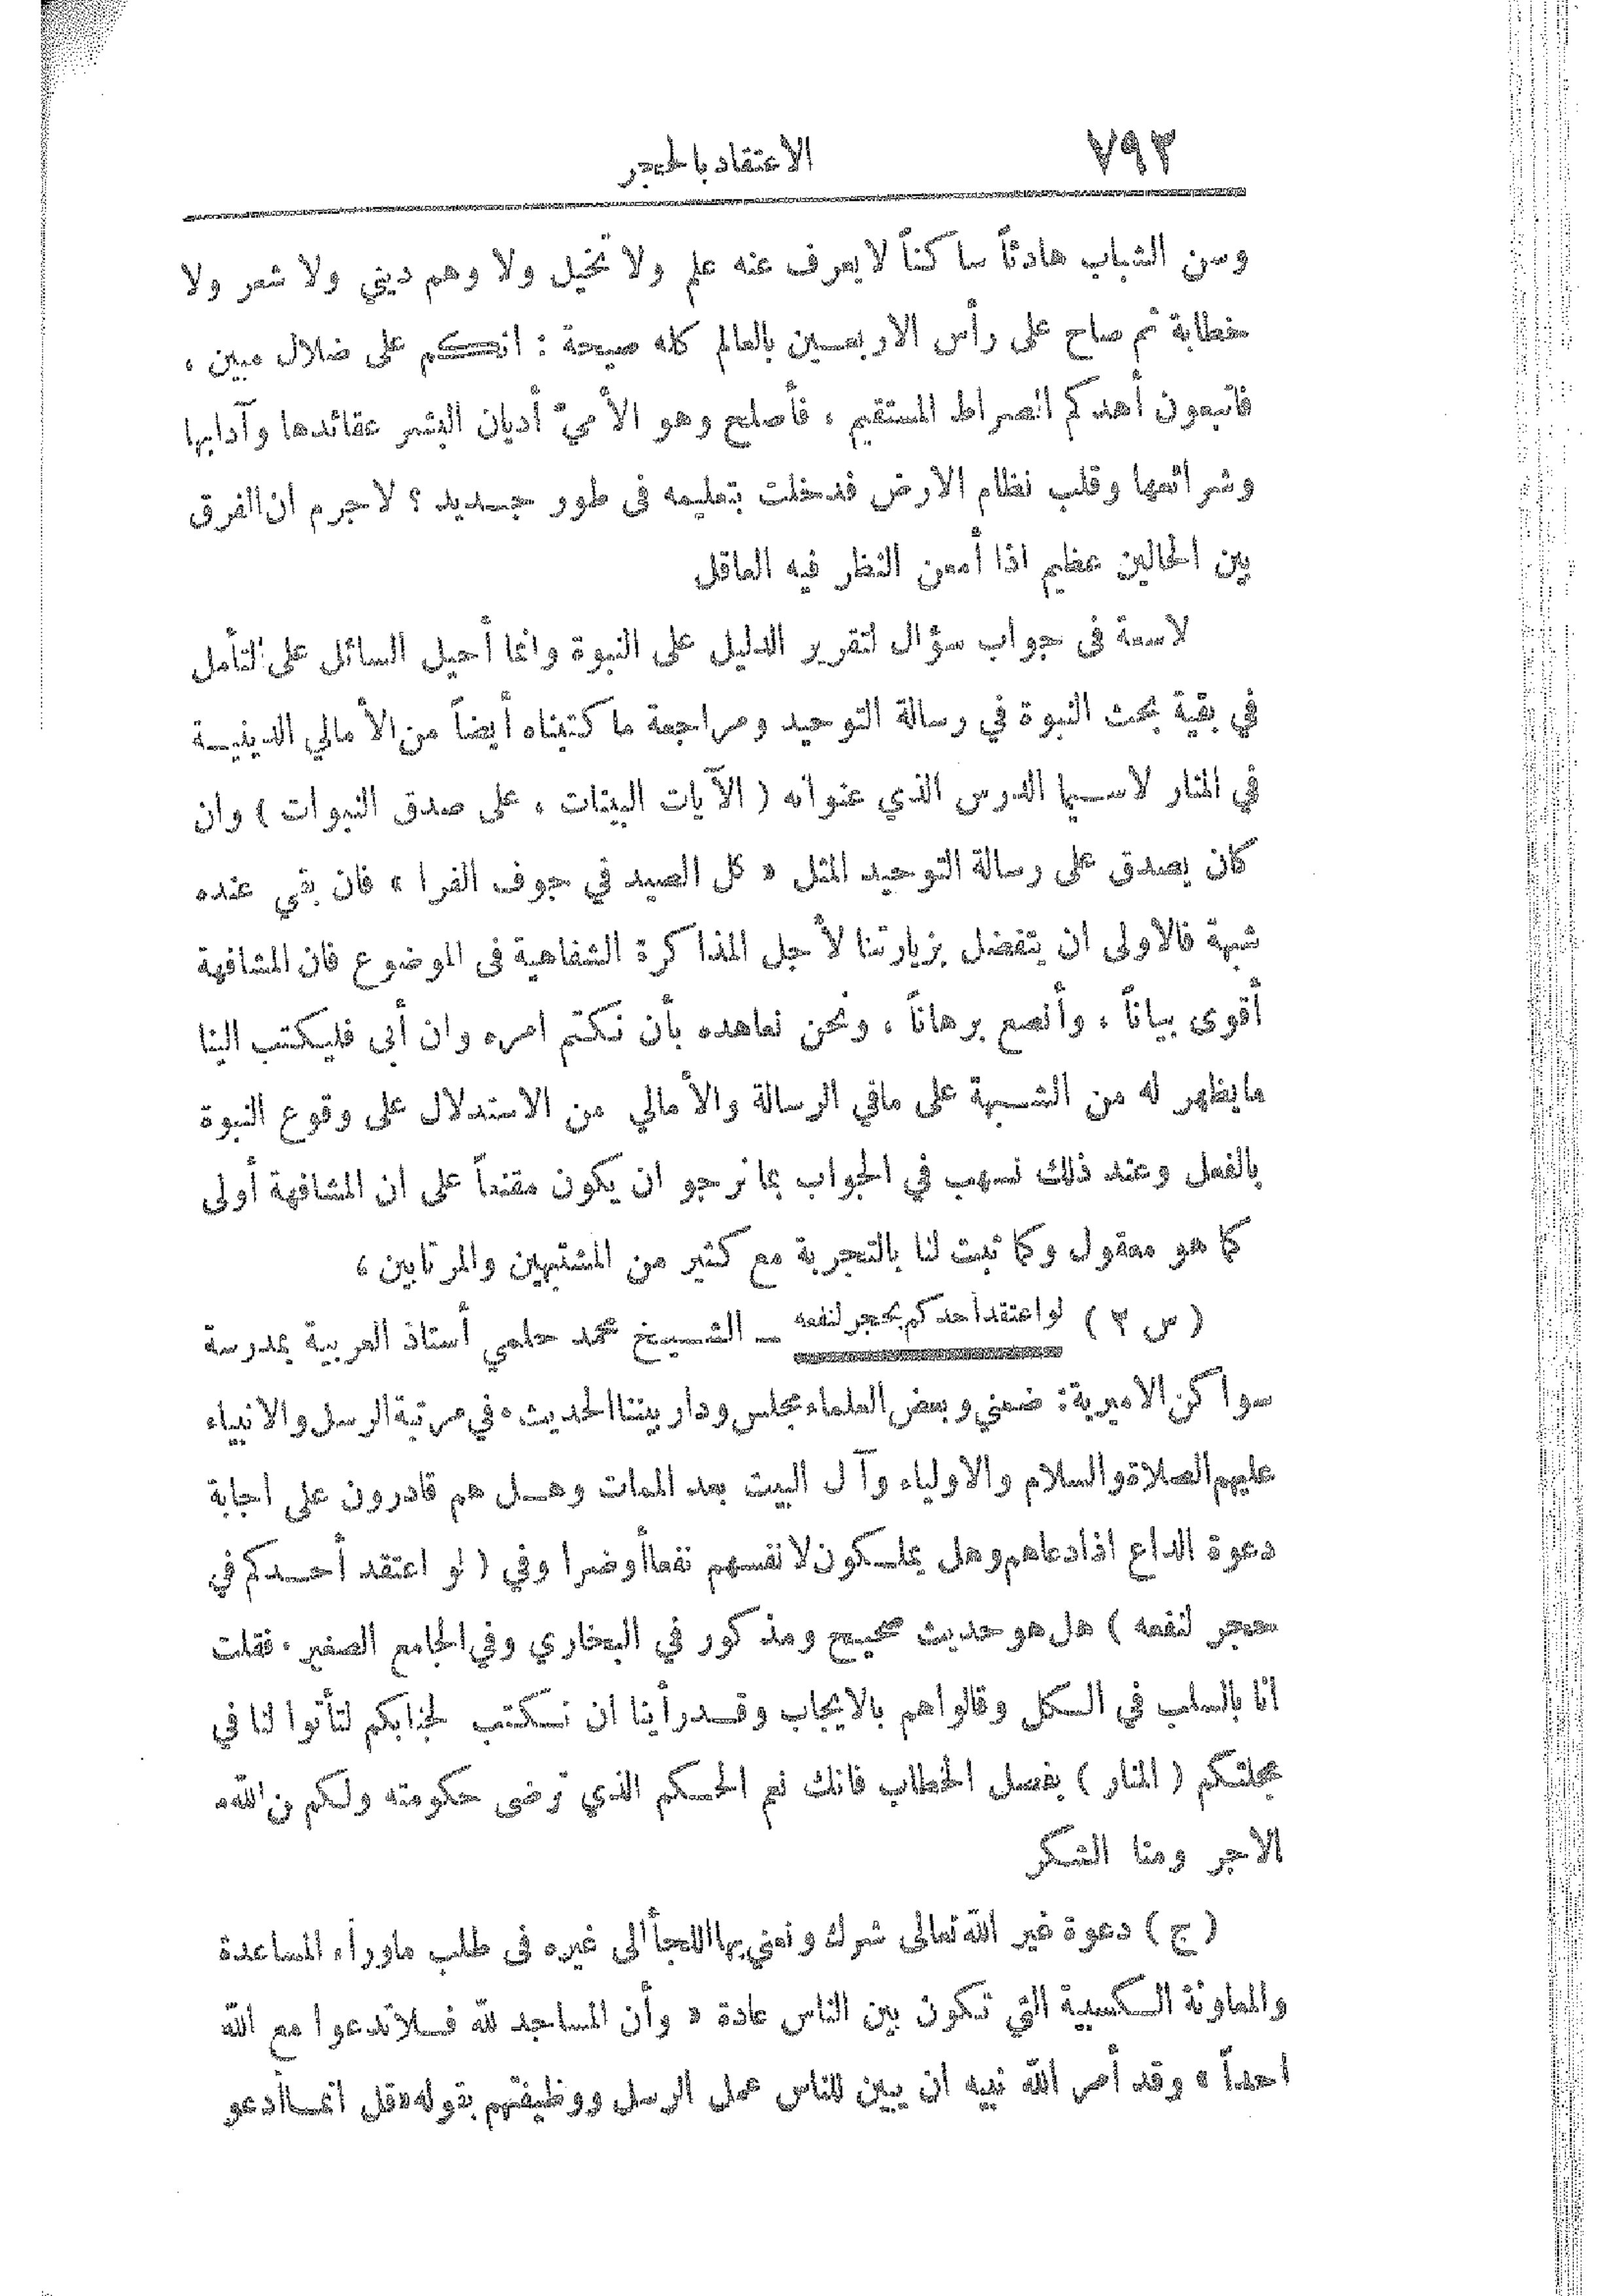 ٧٩٣
الاعتقاد بالحجر
وسن الشباب هادئاً ساكناً لا يعرف عنه علم ولا تخيل ولا وهم ديني ولا شعر ولا
خطابة ثم صاح على رأس الاربعين بالعالم كله صيحة : انكم على ضلال مبين ،
فاتبعون أهدكم الصراط المستقيم ، فأصلح وهو الأميّ أديان البشر عقائدها وآدابها
وشرائعها وقلب نظام الارض فدخلت بتعليمه فى طور جديد ؟ لاجرم ان الفرق
بين الحالين عظيم اذا أمعن النظر فيه العاقل
لاسعة فى جواب سؤال لتقرير الدليل على النبوة وانما أحيل السائل على التأمل
في بقية بحث النبوة في رسالة التوحيد ومراجعة ما كتبناه أيضاً من الأمالي الدينية
في المنار لاسيما الدرس الذي عنوانه ( الآيات البينات ، على صدق النبوات ) وان
كان يصدق على رسالة التوحيد المثل « كل الصيد في جوف الفرا » فان بقي عنده
شبهة فالاولى ان يتفضل بزيارتنا لأجل المذاكرة الشفاهية فى الموضوع فان المشافهة
أقوى بياناً ، وأنصع برهاناً ، ونحن نعاهده بأن نكتم امره وان أبى فليكتب الينا
مايظهر له من الشبهة على مافي الرسالة والأمالي من الاستدلال على وقوع النبوة
بالفعل وعند ذلك نسهب في الجواب بما نرجو ان يكون مقنعاً على ان المشافهة أولى
كما هو معقول وكما ثبت لنا بالتجربة مع كثير من المشتبهين والمرتابين ،
( س ٣ ) لو اعتقد أحدكم بحجر لنفعه ــ الشيخ محمد حلمي أستاذ العربية بمدرسة
سواكن الاميرية : ضمني وبعض العلماء مجلس ودار بيننا الحديث ، في مرتبة الرسل والانبياء
عليهم الصلاة والسلام والاولياء وآل البيت بعد الممات وهل هم قادرون على اجابة
دعوة الداع اذا دعاهم وهل يملكون لانفسهم نفعا أو ضرا وفي ( لو اعتقد أحدكم في
حجر لنفعه ) هل هو حديث صحيح ومذكور في البخاري وفي الجامع الصغير . فقلت
انا بالسلب في الكل وقالوا هم بالايجاب وقد رأينا ان نكتب لجنابكم لتأتوا لنا في
مجلتكم ( المنار ) بفصل الخطاب فانك نعم الحكم الذي ترضى حكومته ولكم من الله
الاجر ومنا الشكر
( ج ) دعوة غير الله تعالى شرك ونعني بها اللجأ الى غيره فى طلب ماوراء المساعدة
والمعاونة الكسبية التي تكون بين الناس عادة « وأن المساجد لله فلا تدعوا مع الله
احداً » وقد أمر الله نبيه ان يبين للناس عمل الرسل ووظيفتهم بقوله «قل انما أدعو